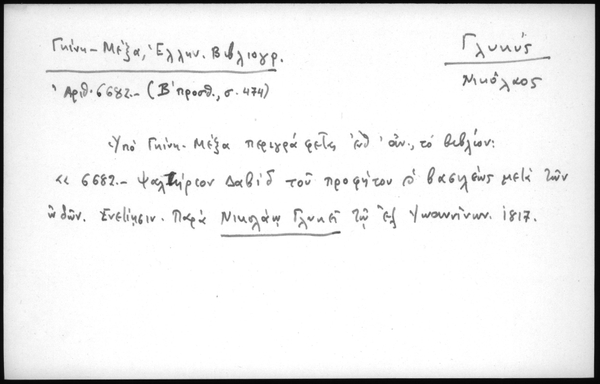 Γκίνη - Μέξα, Ἑλλην. Βιβλιογρ.
Γλυκύς
Νικόλαος
Ἀριθ. 6682.- (Β' προσθ., σ. 474)
Ὑπὸ Γκίνη - Μέξα περιγράφεται ἐνθ' ἀν., τὸ βιβλίον:
« 6682.- Ψαλτήριον Δαβὶδ τοῦ προφήτου & βασιλέως μετὰ τῶν
ᾠδῶν. Ἐνετίησιν. Παρὰ Νικολάῳ Γλυκεῖ τῷ ἐξ Ἰωαννίνων. 1817.